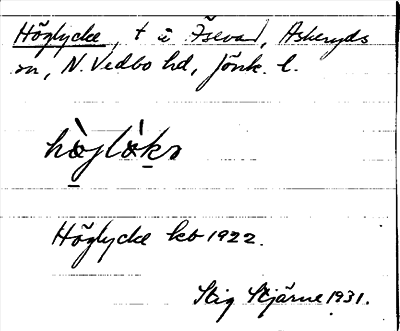 Höglycke, t i Äsevad, Askeryds
sn, N. Vedbo hd, Jönk. l.
Höglycke kb 1922.
Stig Stjärne 1931.